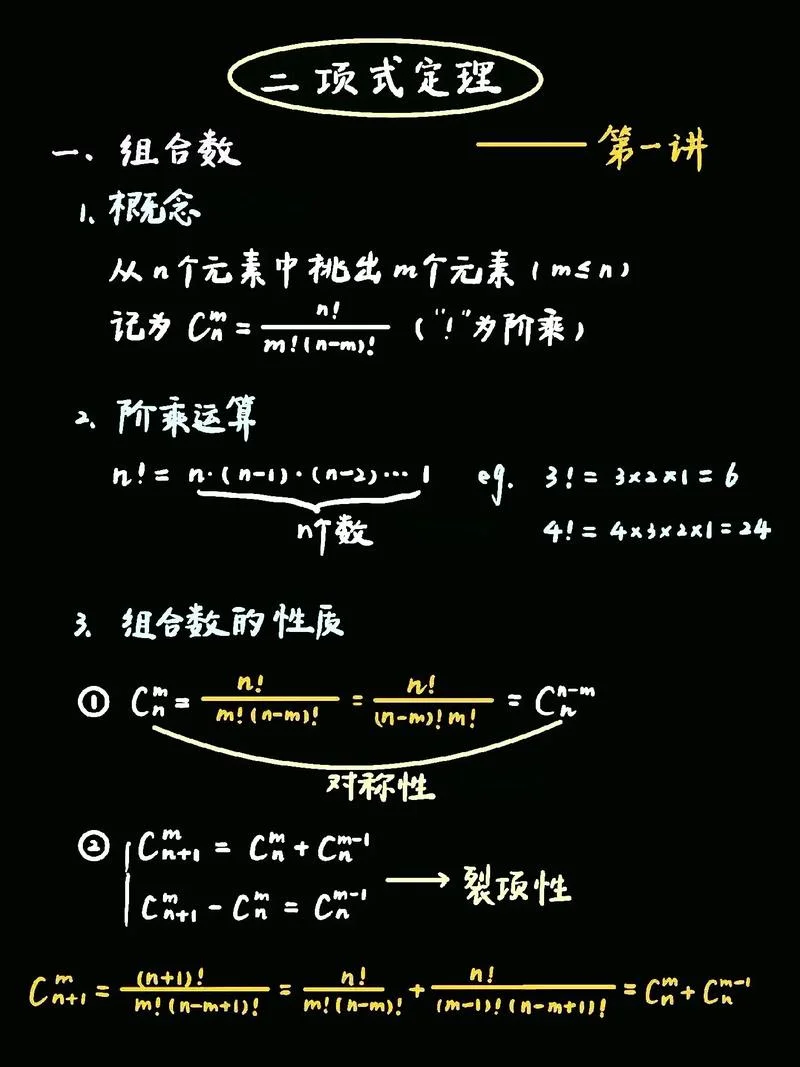 二项式定理
一、组合数 ——— 第一讲
1、概念
从n个元素中挑出m个元素（m≤n）
记为 C_n^m = n!/(m!(n-m)!) （"!"为阶乘）
2、阶乘运算
n! = n·(n-1)·(n-2)···1 eg. 3! = 3×2×1 = 6
n个数 4! = 4×3×2×1 = 24
3、组合数的性质
① C_n^m = n!/(m!(n-m)!) = n!/((n-m)!m!) = C_n^{n-m}
对称性
② C_{n+1}^m = C_n^m + C_n^{m-1}
C_{n+1}^m - C_n^m = C_n^{m-1} → 裂项性
C_{n+1}^m = (n+1)!/(m!(n-m+1)!) = n!/(m!(n-m)!) + n!/((m-1)!(n-m+1)!) = C_n^m + C_n^{m-1}